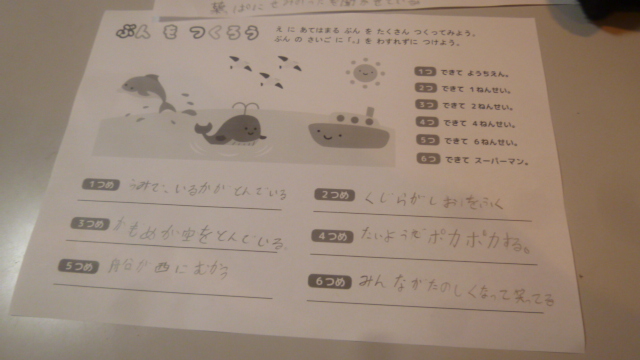 ぶん を つくろう
え に あてはまる ぶん を たくさん つくってみよう。
ぶん の さいご に「。」を わすれずに つけよう。
1つ できて ようちえん。
2つ できて 1ねんせい。
3つ できて 2ねんせい。
4つ できて 4ねんせい。
5つ できて 6ねんせい。
6つ できて スーパーマン。
1つめ うみで、いるかが とんでいる
2つめ くじらがしおをふく
3つめ かもめが空をとんでいる。
4つめ たいようが ポカポカする。
5つめ 船が 西にむかう
6つめ みんながたのしくなって笑ってる